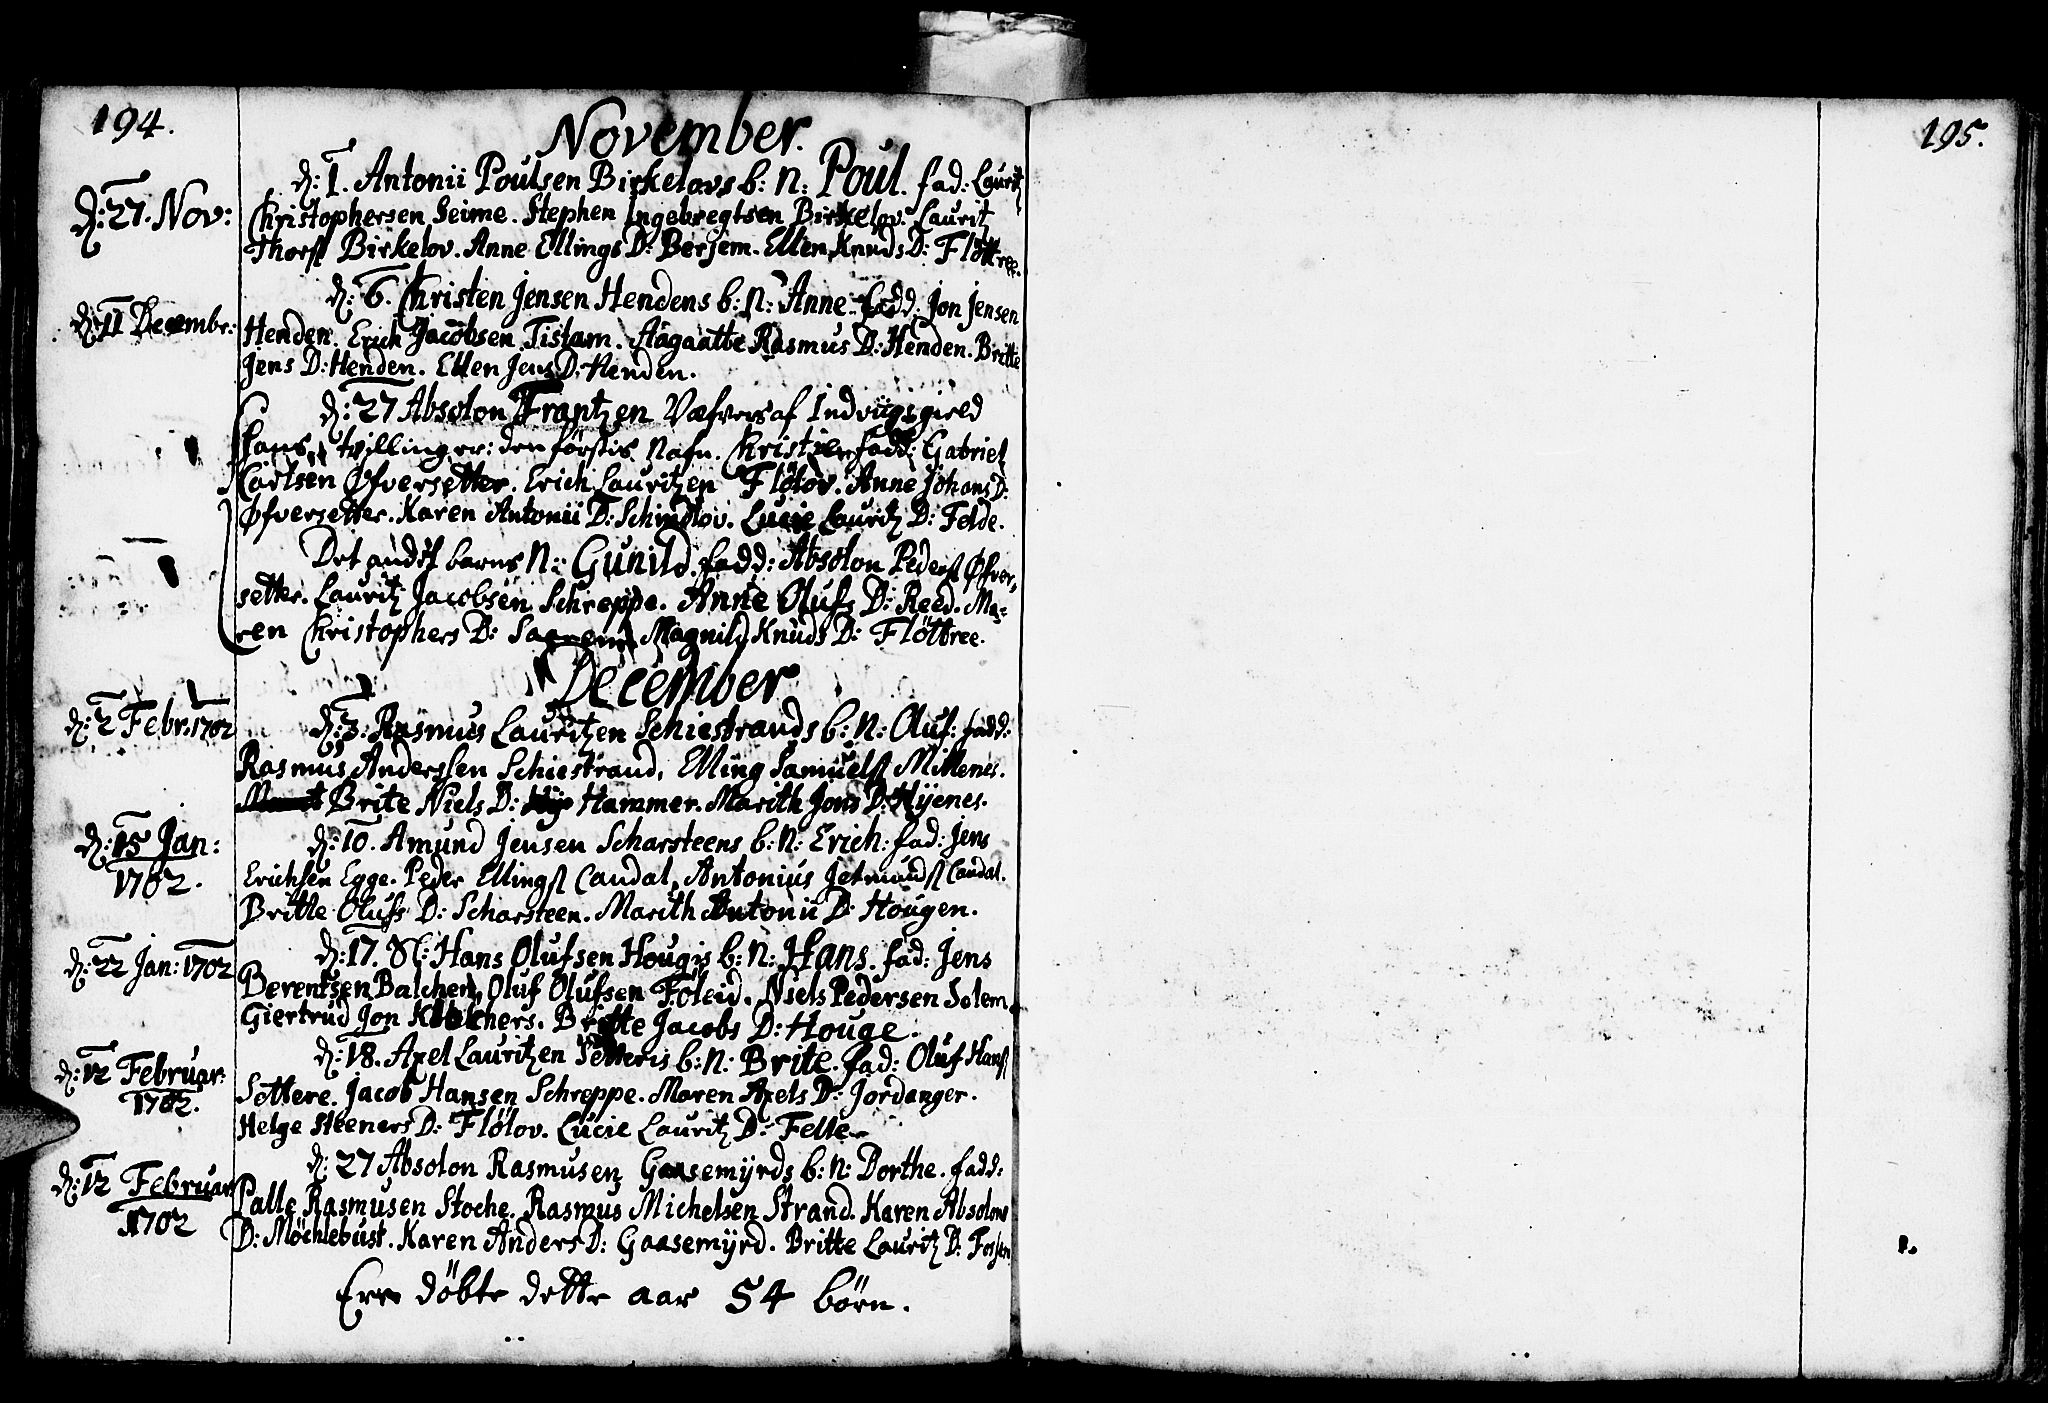 194.
November.
d: 1. Antonii Poulsen Birkelovs b: N: Poul. fad: Lauritz
d: 27. Nov:
Christophersen Seime. Stephen Ingebregtsen Birkelov. Lauritz
Thorss Birkelov. Anne Ellings D: Berjem. Ellen Knuds D: Flöttree.
d: 6. Christen Jensen Hendens b: N: Anne. Fadd: Jon Jensen
d: 11 Decembr:
Henden. Erich Jacobsen Tistam. Aagaatte Rasmus D: Henden. Britte
Jens D: Henden. Ellen Jens D: Henden.
d: 27 Absolon Frantzen Væfvers af Indviigsgield
hans tvillinger: den förstis Nafn. Christien fadd: Gabriel
Carlsen Øfversetter. Erich Lauritzen Flölov. Anne Johans D:
Øfversetter. Karen Antonii D: Schindlov. Lucie Lauritz D: Felde.
Det andet barns N: Gunild. fadd: Absolon Pederss Øfver-
setter. Lauritz Jacobsen Schreppe. Anne Olufs D: Reed. Ma-
ren Christophers D: Magnild Knuds D: Flöttree.
December
d: 2 Febr. 1702
d: 3: Rasmus Lauritzen Schiestrands b: N: Oluf: fadd:
Rasmus Anderssen Schiestrand, Elling Samuelss Millenes.
Brite Niels D: Hammer. Marith Jons D: Hÿenes.
d: 15 Jan:
1702.
d: 10. Amund Jensen Scharsteens b: N: Erich: fad: Jens
Erichsen Egge. Peder Ellingss Candal, Antonius Jetmundss Candal.
Britte Olufs D: Scharsteen. Marith Antonii D: Hougen.
d: 22 Jan: 1702
d: 17. Sl: Hans Olufsen Hougis b: N: Hans. fad: Jens
Berentsen Balchen, Oluf Olufsen Föleid. Niels Pedersen Solem.
Giertrud Jon Britte Jacobs D: Houge.
d: 12 Februar:
1702.
d: 18. Axel Lauritzen Setteris b: N: Brite. fad: Oluf Hanss
Settere. Jacob Hansen Schreppe. Maren Axels D: Jordanger.
Helge Steeners D: Flölov. Lucie Lauritz D: Felle
d: 12 Februar
1702
d: 27 Absolon Rasmusen Gaasemÿrds b: N: Dorthe. fadd:
Palle Rasmusen Stoche. Rasmus Michelsen Strand. Karen Absolons
D: Möchlebust. Karen Anders D: Gaasemÿrd. Britte Lauritz D: Fossen
Ere döbte dette aar 54 börn.
195.